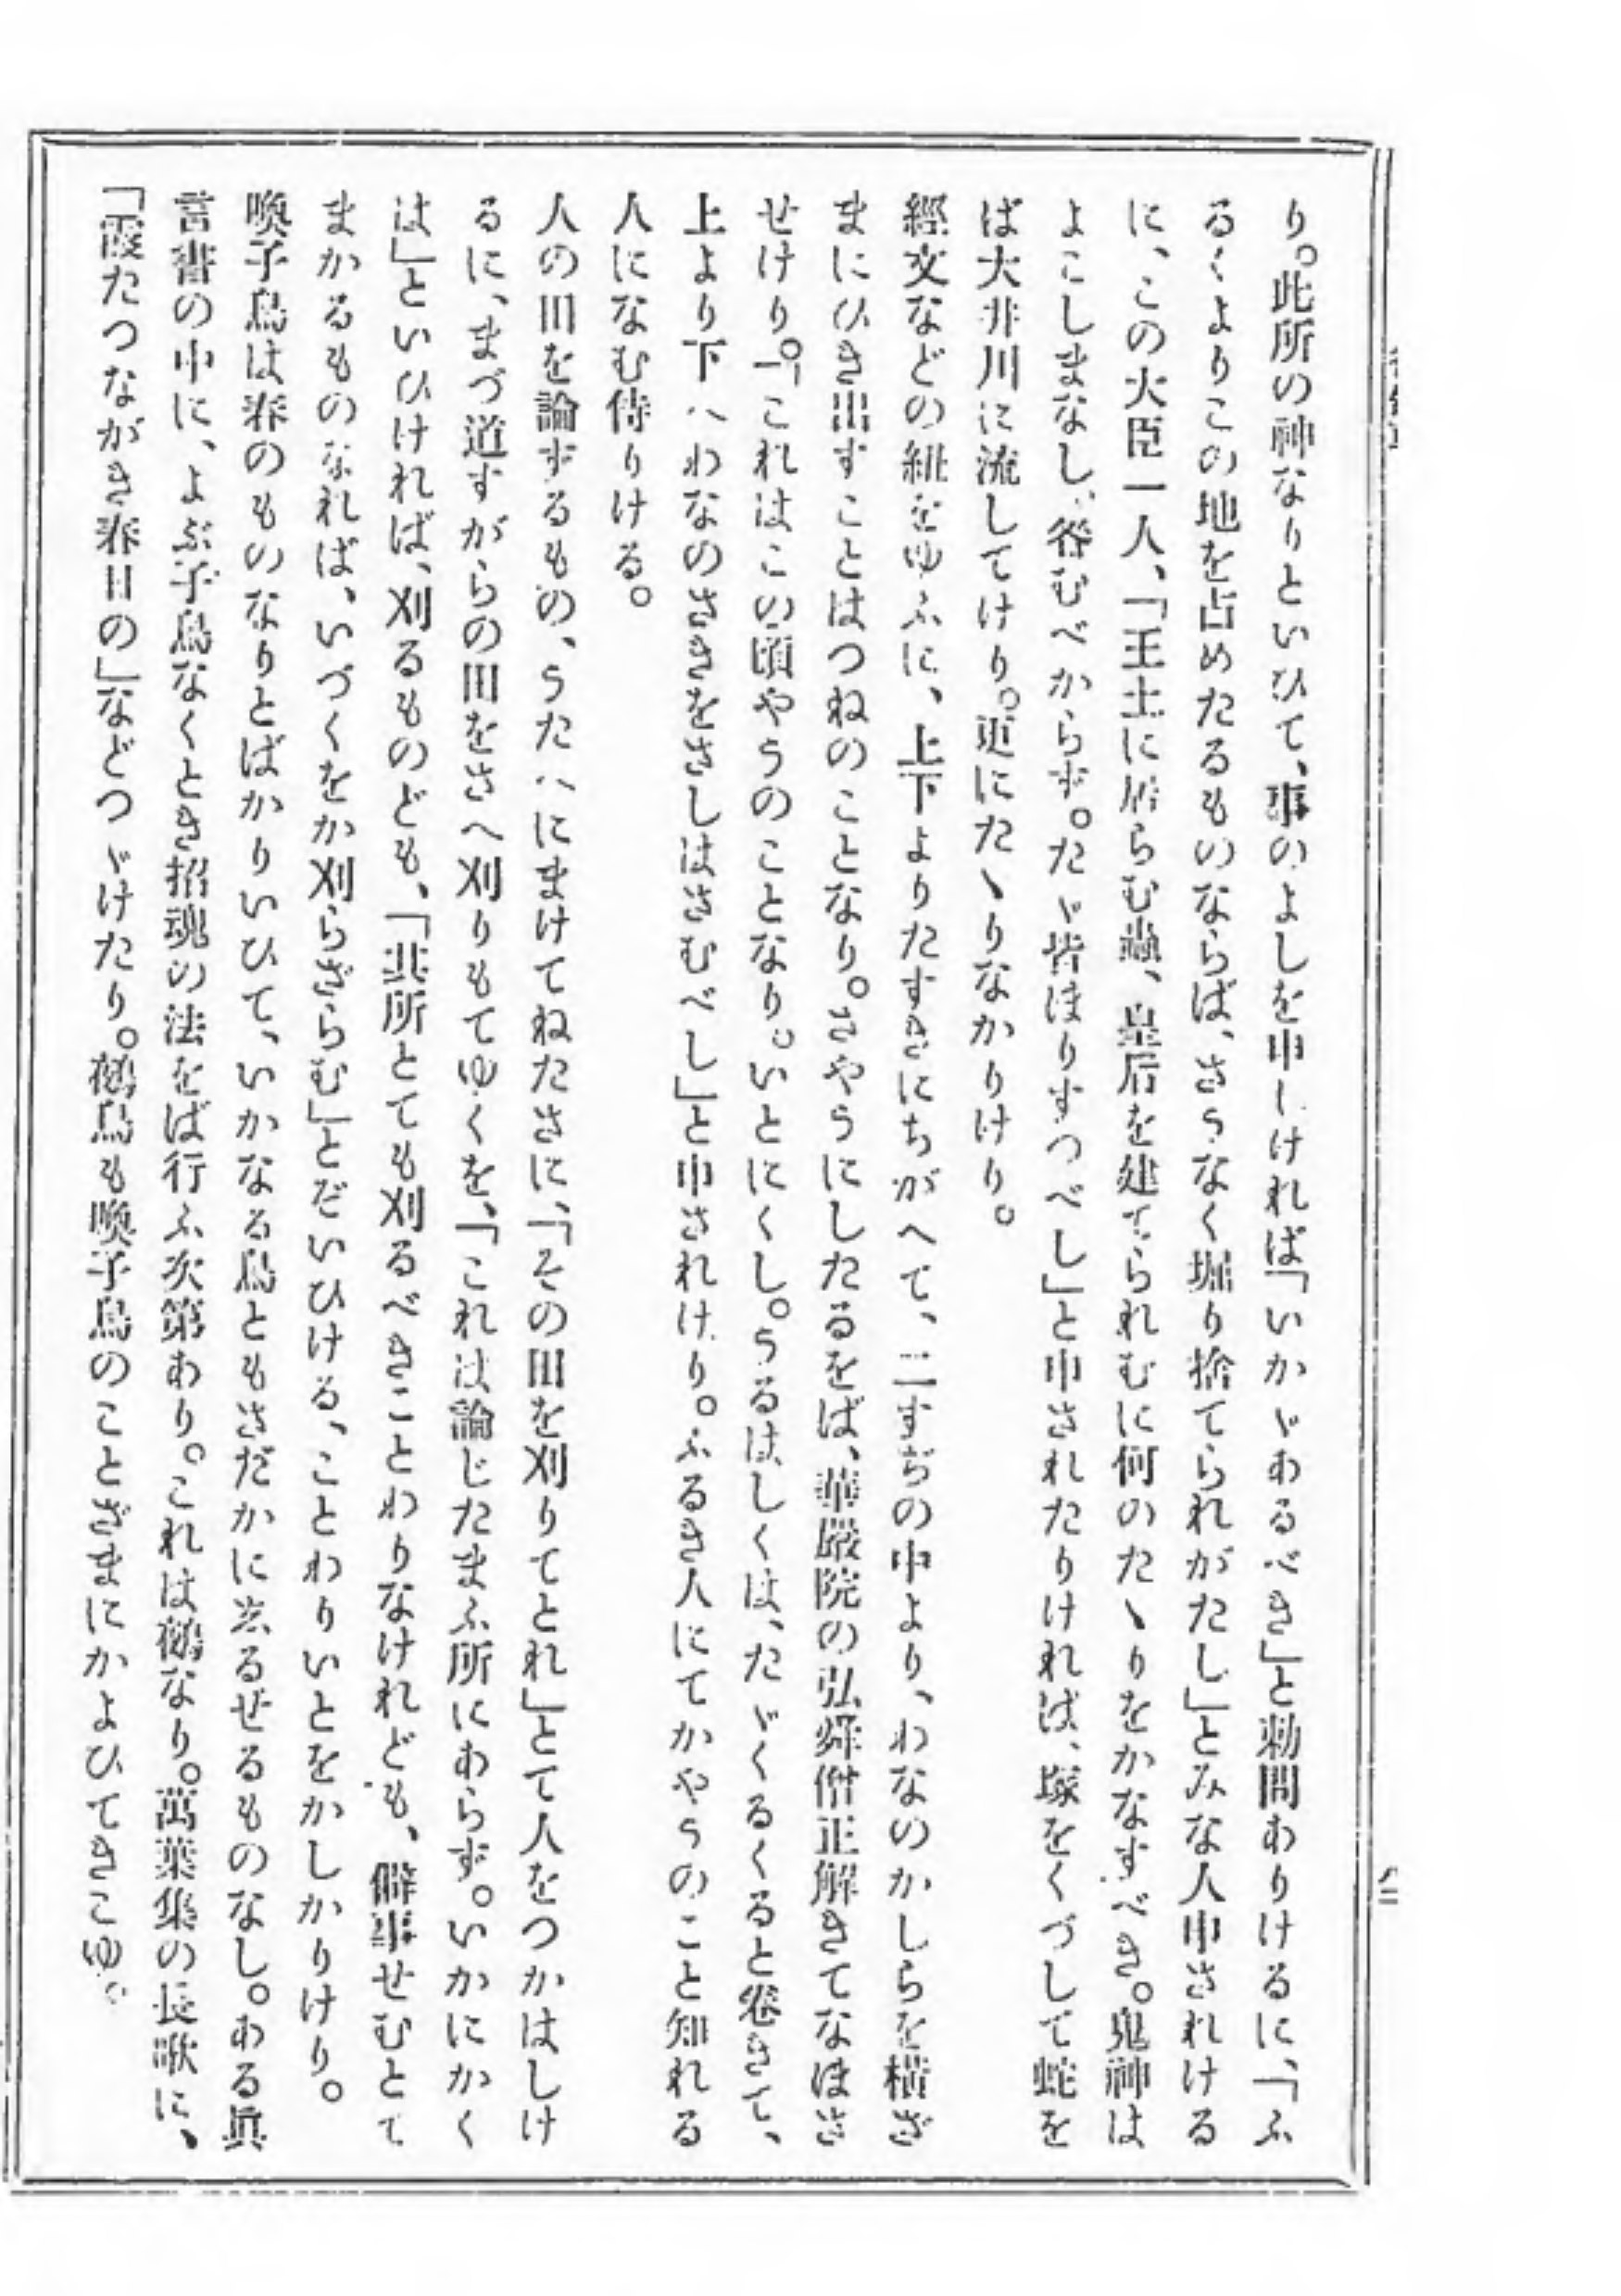 り。此所の神なりといひて、事のよしを申しければ「いかゞあるべき」と勅問ありけるに、「ふ
るくよりこの地を占めたるものならば、さうなく堀り捨てられがたし」とみな人申されける
に、この大臣一人、「王土に居らむ蟲、皇后を建てられむに何のたゝりをかなすべき。鬼神は
よこしまなし、咎むべからず。たゞ皆ほりすつべし」と申されたりければ、塚をくづして蛇を
ば大井川に流してけり。更にたゝりなかりけり。
經文などの紐をゆふに、上下よりたすきにちがへて、二すぢの中より、わなのかしらを橫ざ
まにひき出すことはつねのことなり。さやうにしたるをば、華嚴院の弘舜僧正解きてなほさ
せけり。「これはこの頃やうのことなり。いとにくし。うるはしくは、たゞくるくると卷きて、
上より下へわなのさきをさしはさむべし」と申されけり。ふるき人にてかやうのこと知れる
人になむ侍りける。
人の田を論ずるもの、うたへにまけてねたさに、「その田を刈りてとれ」とて人をつかはしけ
るに、まづ道すがらの田をさへ刈りもてゆくを、「これは論じたまふ所にあらず。いかにかく
は」といひければ、刈るものども、「其所とても刈るべきことわりなけれども、僻事せむとて
まかるものなれば、いづくをか刈らざらむ」とだいひける、ことわりいとをかしかりけり。
喚子鳥は春のものなりとばかりいひて、いかなる鳥ともさだかに志るせるものなし。ある眞
言書の中に、よぶ子鳥なくとき招魂の法をば行ふ次第あり。これは鵺なり。萬葉集の長歌に、
「霞たつながき春日の」などつゞけたり。鵺鳥も喚子鳥のことざまにかよひてきこゆ。